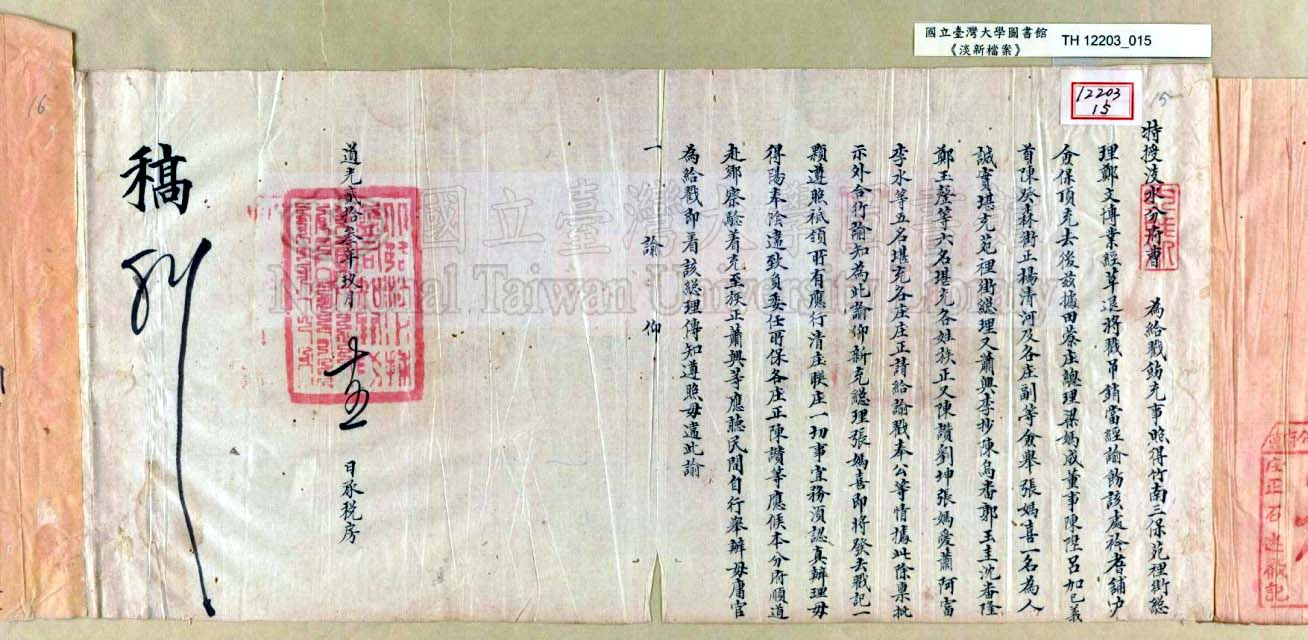 國立臺灣大學圖書館
《淡新檔案》
TH 12203_015
12203
15
15
特授淡水分府曹 為給戳飭充事照得竹南三保苑裡街總
理鄭文博業經革退將戳吊銷當經諭飭該處衿耆舖户
僉保頂充去後茲據田藔庄總理梁媽成董事陳陞呂加己義
首陳癸森街正楊清河及各庄副等僉舉張媽喜一名為人
誠實堪充苑裡街總理又蕭興李抄陳烏番郭玉圭沈番隆
鄭玉瑩等六名堪充各姓族正又陳讚劉坤張媽愛蕭阿富
李水等五名堪充各庄庄正請給諭戳奉公等情據此除稟批
示外合行諭知為此諭仰新充總理張媽喜即將發去戳記一
顆遵照祇領所有應行清庄聯庄一切事宜務須認真辦理毋
得陽奉陰違致負委任所保各庄正陳讚等應候本分府順道
赴鄉察驗着充至族正蕭興等應聽民間自行舉辦毋庸官
為給戳即着該總理傳知遵照毋違此諭
一 諭 仰
道光貳拾叁年玖月 十五 日承税房
稿
行
16
國立臺灣大學圖書館
National Taiwan University Library
庄正石進
記